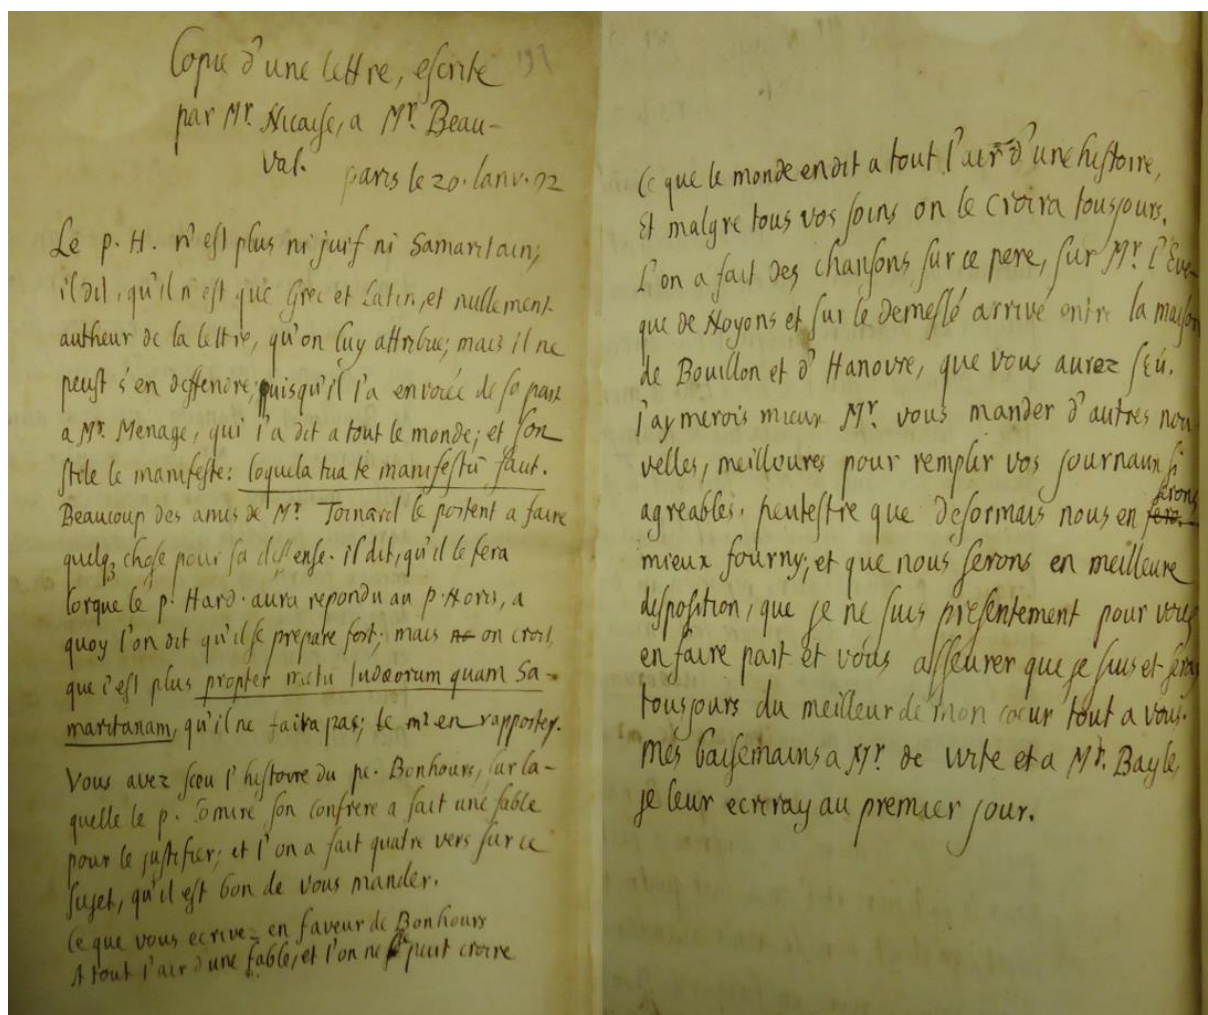 Copie d'une lettre, escrite
par Mr. Nicaise, a Mr. Beau-
val.
paris le 20. Ianv. 92
Le p. H. n'est plus ni juif ni Samaritain;
il dit, qu'il n'est que Grec et Latin, et nullement
autheur de la lettre, qu'on luy attribue; mais il ne
peust s'en deffendre, puisqu'il l'a envoiée de sa part
a Mr. Menage, qui l'a dit a tout le monde; et son
stile le manifeste: loquela tua te manifestū facit.
Beaucoup des amis de Mr. Toinard le portent a faire
quelqz chose pour sa deffense. il dit, qu'il le fera
lorque le p. Hard. aura repondu au p. Noris, a
quoy l'on dit qu'il se prepare fort; mais on croit,
que c'est plus propter metū Iudæorum quam Sa-
maritanam, qu'il ne faira pas; Ie m'en rapporte.
Vous avez sceu l'histoire du pe. Bonhours, sur la-
quelle le p. Comire son confrere a fait une fable
pour le justifier; et l'on a fait quatre vers sur ce
sujet, qu'il est bon de vous mander.
Ce que vous ecrivez en faveur de Bonhours
A tout l'air d'une fable, et l'on ne le peut croire
Ce que le monde en dit a tout l'air d'une histoire,
Et malgre tous vos soins on le croira tousjours.
L'on a fait des chansons sur ce pere, sur Mr. l'Eve-
que de Noyons et sur le demeslé arrivé entre la maison
de Bouillon et d'Hanovre, que vous aurez sçú.
j'aymerois mieux Mr. vous mander d'autres nou-
velles, meilleures pour remplir vos journaux si
agreables. peutestre que desormais nous en serons
mieux fourny; et que nous serons en meilleure
disposition, que je ne suis presentement pour vous
en faire part et vous asseurer que je suis et seray
tousjours du meilleur de mon coeur tout a vous.
mes baisemains a Mr. de Wite et a Mr. Bayle,
je leur ecriray au premier jour.